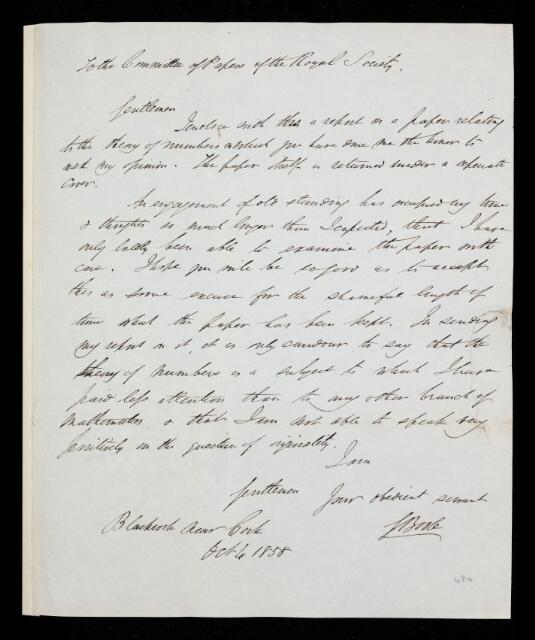 To the Committee of Papers of the Royal Society.
Gentlemen
I enclose with this a report on a paper relating
to the theory of numbers on which you have done me the honor to
ask my opinion. The paper itself is returned under a separate
cover.
An engagement of old standing has occupied my time
& thoughts so much longer than I expected, that I have
only lately been able to examine the paper with
care. I hope you will be so good as to accept
this as some excuse for the shameful length of
time which the paper has been kept. In sending
my report on it, it is only candour to say that the
theory of numbers is a subject to which I have
paid less attention than to any other branch of
Mathematics & that I am not able to speak very
positively on the question of originality.
I am
Gentlemen Your obedient servant
G Boole
Blackrock near Cork
Oct 4 1858
484